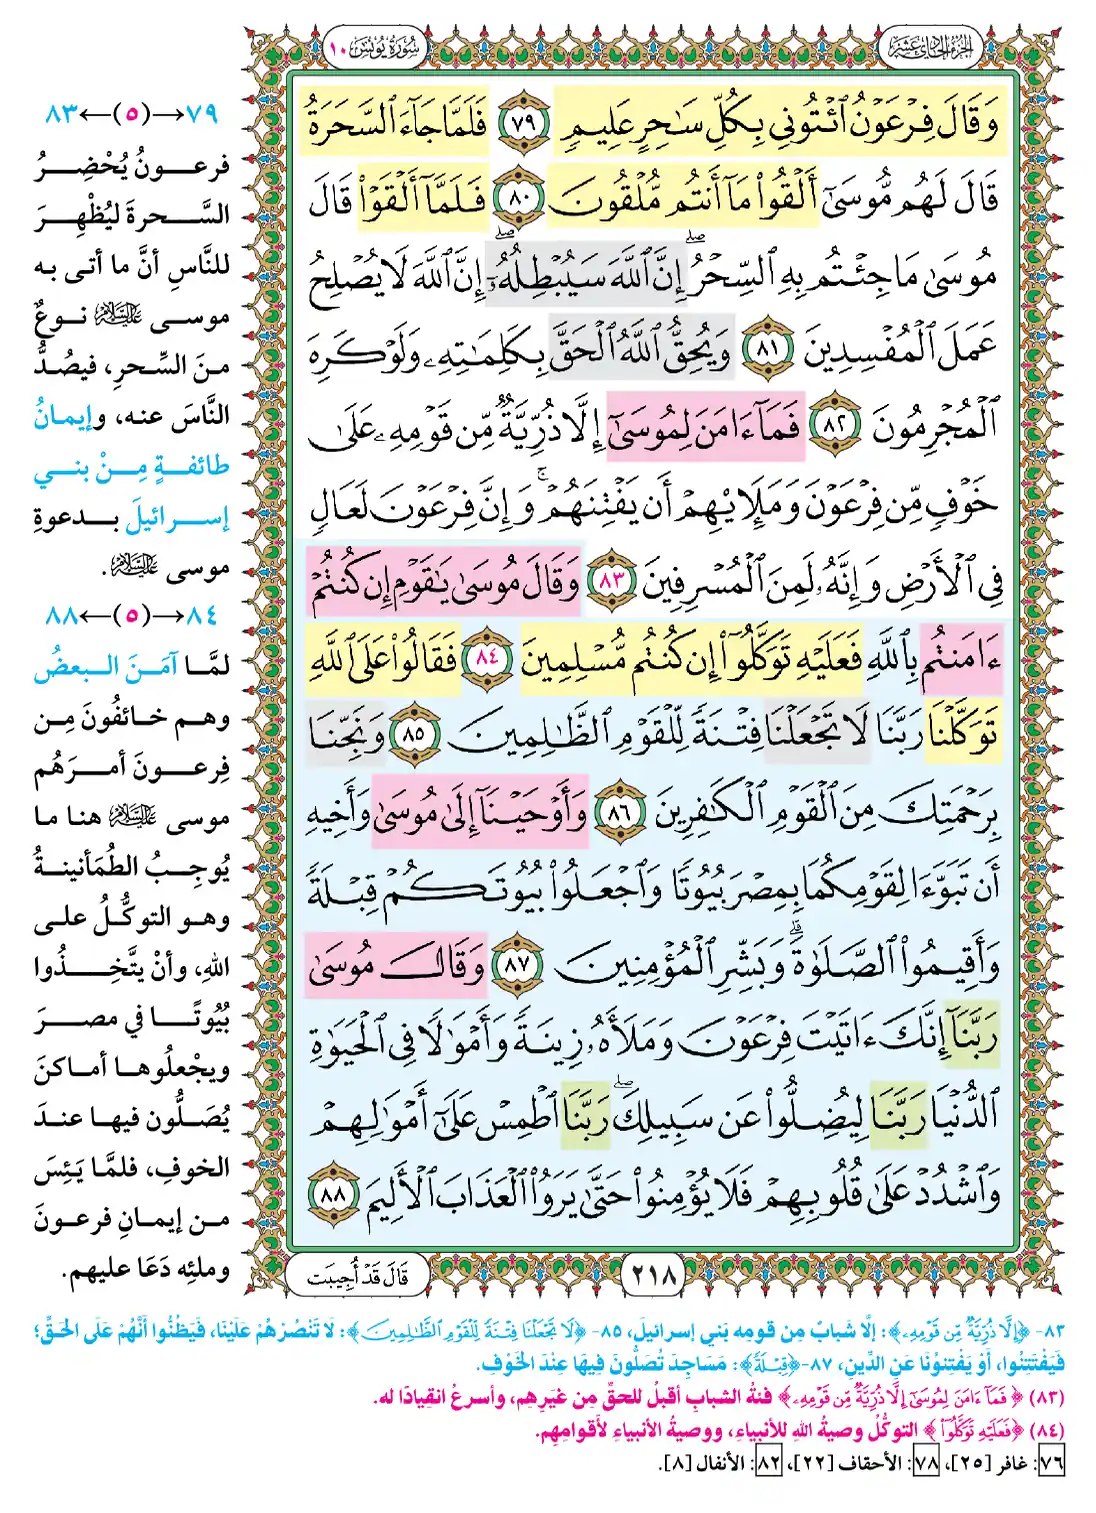 الجزء الحادي عشر
سورة يونس ١٠
وَقَالَ فِرْعَوْنُ ٱئْتُونِي بِكُلِّ سَٰحِرٍ عَلِيمٍ ٧٩ فَلَمَّا جَآءَ ٱلسَّحَرَةُ
قَالَ لَهُم مُّوسَىٰٓ أَلْقُوا۟ مَآ أَنتُم مُّلْقُونَ ٨٠ فَلَمَّآ أَلْقَوْا۟ قَالَ
مُوسَىٰ مَا جِئْتُم بِهِ ٱلسِّحْرُۖ إِنَّ ٱللَّهَ سَيُبْطِلُهُۥٓۖ إِنَّ ٱللَّهَ لَا يُصْلِحُ
عَمَلَ ٱلْمُفْسِدِينَ ٨١ وَيُحِقُّ ٱللَّهُ ٱلْحَقَّ بِكَلِمَٰتِهِۦ وَلَوْ كَرِهَ
ٱلْمُجْرِمُونَ ٨٢ فَمَآ ءَامَنَ لِمُوسَىٰٓ إِلَّا ذُرِّيَّةٌ مِّن قَوْمِهِۦ عَلَىٰ
خَوْفٍ مِّن فِرْعَوْنَ وَمَلَإِي۟هِمْ أَن يَفْتِنَهُمْۚ وَإِنَّ فِرْعَوْنَ لَعَالٍ
فِي ٱلْأَرْضِ وَإِنَّهُۥ لَمِنَ ٱلْمُسْرِفِينَ ٨٣ وَقَالَ مُوسَىٰ يَٰقَوْمِ إِن كُنتُمْ
ءَامَنتُم بِٱللَّهِ فَعَلَيْهِ تَوَكَّلُوٓا۟ إِن كُنتُم مُّسْلِمِينَ ٨٤ فَقَالُوا۟ عَلَى ٱللَّهِ
تَوَكَّلْنَا رَبَّنَا لَا تَجْعَلْنَا فِتْنَةً لِّلْقَوْمِ ٱلظَّٰلِمِينَ ٨٥ وَنَجِّنَا
بِرَحْمَتِكَ مِنَ ٱلْقَوْمِ ٱلْكَٰفِرِينَ ٨٦ وَأَوْحَيْنَآ إِلَىٰ مُوسَىٰ وَأَخِيهِ
أَن تَبَوَّءَا لِقَوْمِكُمَا بِمِصْرَ بُيُوتًا وَٱجْعَلُوا۟ بُيُوتَكُمْ قِبْلَةً
وَأَقِيمُوا۟ ٱلصَّلَوٰةَۗ وَبَشِّرِ ٱلْمُؤْمِنِينَ ٨٧ وَقَالَ مُوسَىٰ
رَبَّنَآ إِنَّكَ ءَاتَيْتَ فِرْعَوْنَ وَمَلَأَهُۥ زِينَةً وَأَمْوَٰلًا فِي ٱلْحَيَوٰةِ
ٱلدُّنْيَا رَبَّنَا لِيُضِلُّوا۟ عَن سَبِيلِكَۖ رَبَّنَا ٱطْمِسْ عَلَىٰٓ أَمْوَٰلِهِمْ
وَٱشْدُدْ عَلَىٰ قُلُوبِهِمْ فَلَا يُؤْمِنُوا۟ حَتَّىٰ يَرَوُا۟ ٱلْعَذَابَ ٱلْأَلِيمَ ٨٨
٢١٨
قَالَ قَدْ أُجِيبَت
٧٩→(٥)←٨٣
فرعونُ يُحْضِرُ
السَّحرةَ ليُظْهِرَ
للنَّاسِ أنَّ ما أتى به
موسى عليه السلام نوعٌ
منَ السِّحرِ، فيصُدُّ
النَّاسَ عنه، وإيمانُ
طائفةٍ مِنْ بني
إسرائيلَ بدعوةِ
موسى عليه السلام.
٨٤→(٥)←٨٨
لمَّا آمَنَ البعضُ
وهم خائفُون مِن
فِرعونَ أمرَهُم
موسى عليه السلام هنا ما
يُوجِبُ الطُمَأنينةُ
وهو التوكُّلُ على
اللهِ، وأنْ يتَّخِذُوا
بُيُوتًا في مصرَ
ويجْعلُوها أماكنَ
يُصَلُّون فيها عندَ
الخوفِ، فلمَّا يَئِسَ
من إيمانِ فرعونَ
وملئِه دَعَا عليهم.
٨٣- ﴿إِلَّا ذُرِّيَّةٌ مِّن قَوْمِهِۦ﴾: إلَّا شَبابٌ مِن قومِه بَني إسرائيلَ، ٨٥- ﴿لَا تَجْعَلْنَا فِتْنَةً لِّلْقَوْمِ ٱلظَّٰلِمِينَ﴾: لَا تَنْصُرْهُمْ عَلَيْنَا، فَيَظُنُّوا أَنَّهُمْ عَلَى الحَقِّ؛
فَيَفْتَتِنُوا، أَوْ يَفْتِنوُنَا عَنِ الدِّينِ، ٨٧-﴿قِبْلَةً﴾: مَسَاجِدَ تُصَلُّونَ فِيهَا عِنْدَ الخَوْفِ.
(٨٣) ﴿فَمَآ ءَامَنَ لِمُوسَىٰٓ إِلَّا ذُرِّيَّةٌ مِّن قَوْمِهِۦ﴾ فئةُ الشبابِ أقبلُ للحقِّ مِن غيَرِهم، وأسرعُ انقِيادًا له.
(٨٤) ﴿فَعَلَيْهِ تَوَكَّلُوٓا۟﴾ التوكُّلُ وصيةُ اللهِ للأنبياءِ، ووصيةُ الأنبياءِ لأقوامِهِم.
٧٦: غافر [٢٥]، ٧٨: الأحقاف [٢٢]، ٨٢: الأنفال [٨].